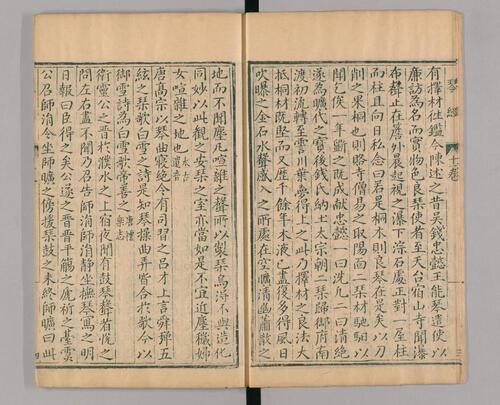 有擇材往鑑今陳述之昔吳錢忠懿王能琴遣使以
廉訪為名而實物色良琴使者至天台宿山寺聞瀑
布聲止在簷外晨起視之瀑下淙石處正對一屋柱
而柱且向日私念曰若是桐木則良琴在是矣以刀
削之果桐也則賂寺僧易之取陽面二琴材馳驅以
聞乞俟一年斲之既成獻忠懿一曰洗凡二曰清絕
遂為曠代之寶後錢氏納土太宗朝二琴歸御府南
渡初流轉至霅川葉夢得上之此乃擇材之良法大
抵桐材既堅而又歷千餘年木液已盡復多得風日
吹曝之金石水聲感入之所處在空曠清幽蕭散之
琴經
十一卷
地而不聞塵凡喧雜之聲所以製琴為滸不與造化
同妙以此觀之安琴之室亦當如是不宜近塵穢婦
女喧雜之地也太古遺音
唐高宗以琴曲寖絕令有司習之呂才上言舜彈五
絃之琴歌白雪之詩是知琴操曲弄皆合於歌今以
御雪詩為白雪歌帝善之唐禮樂志
衛靈公之晉於濮水之上宿夜聞有鼓琴聲者悅之
問左右盡不聞乃召告師涓師涓靜坐撫琴寫之明
日報曰臣得之矣公遂之晉晉平公觴之虒祁之臺靈
公召師涓令坐師曠之傍援琴鼓之未終師曠曰此